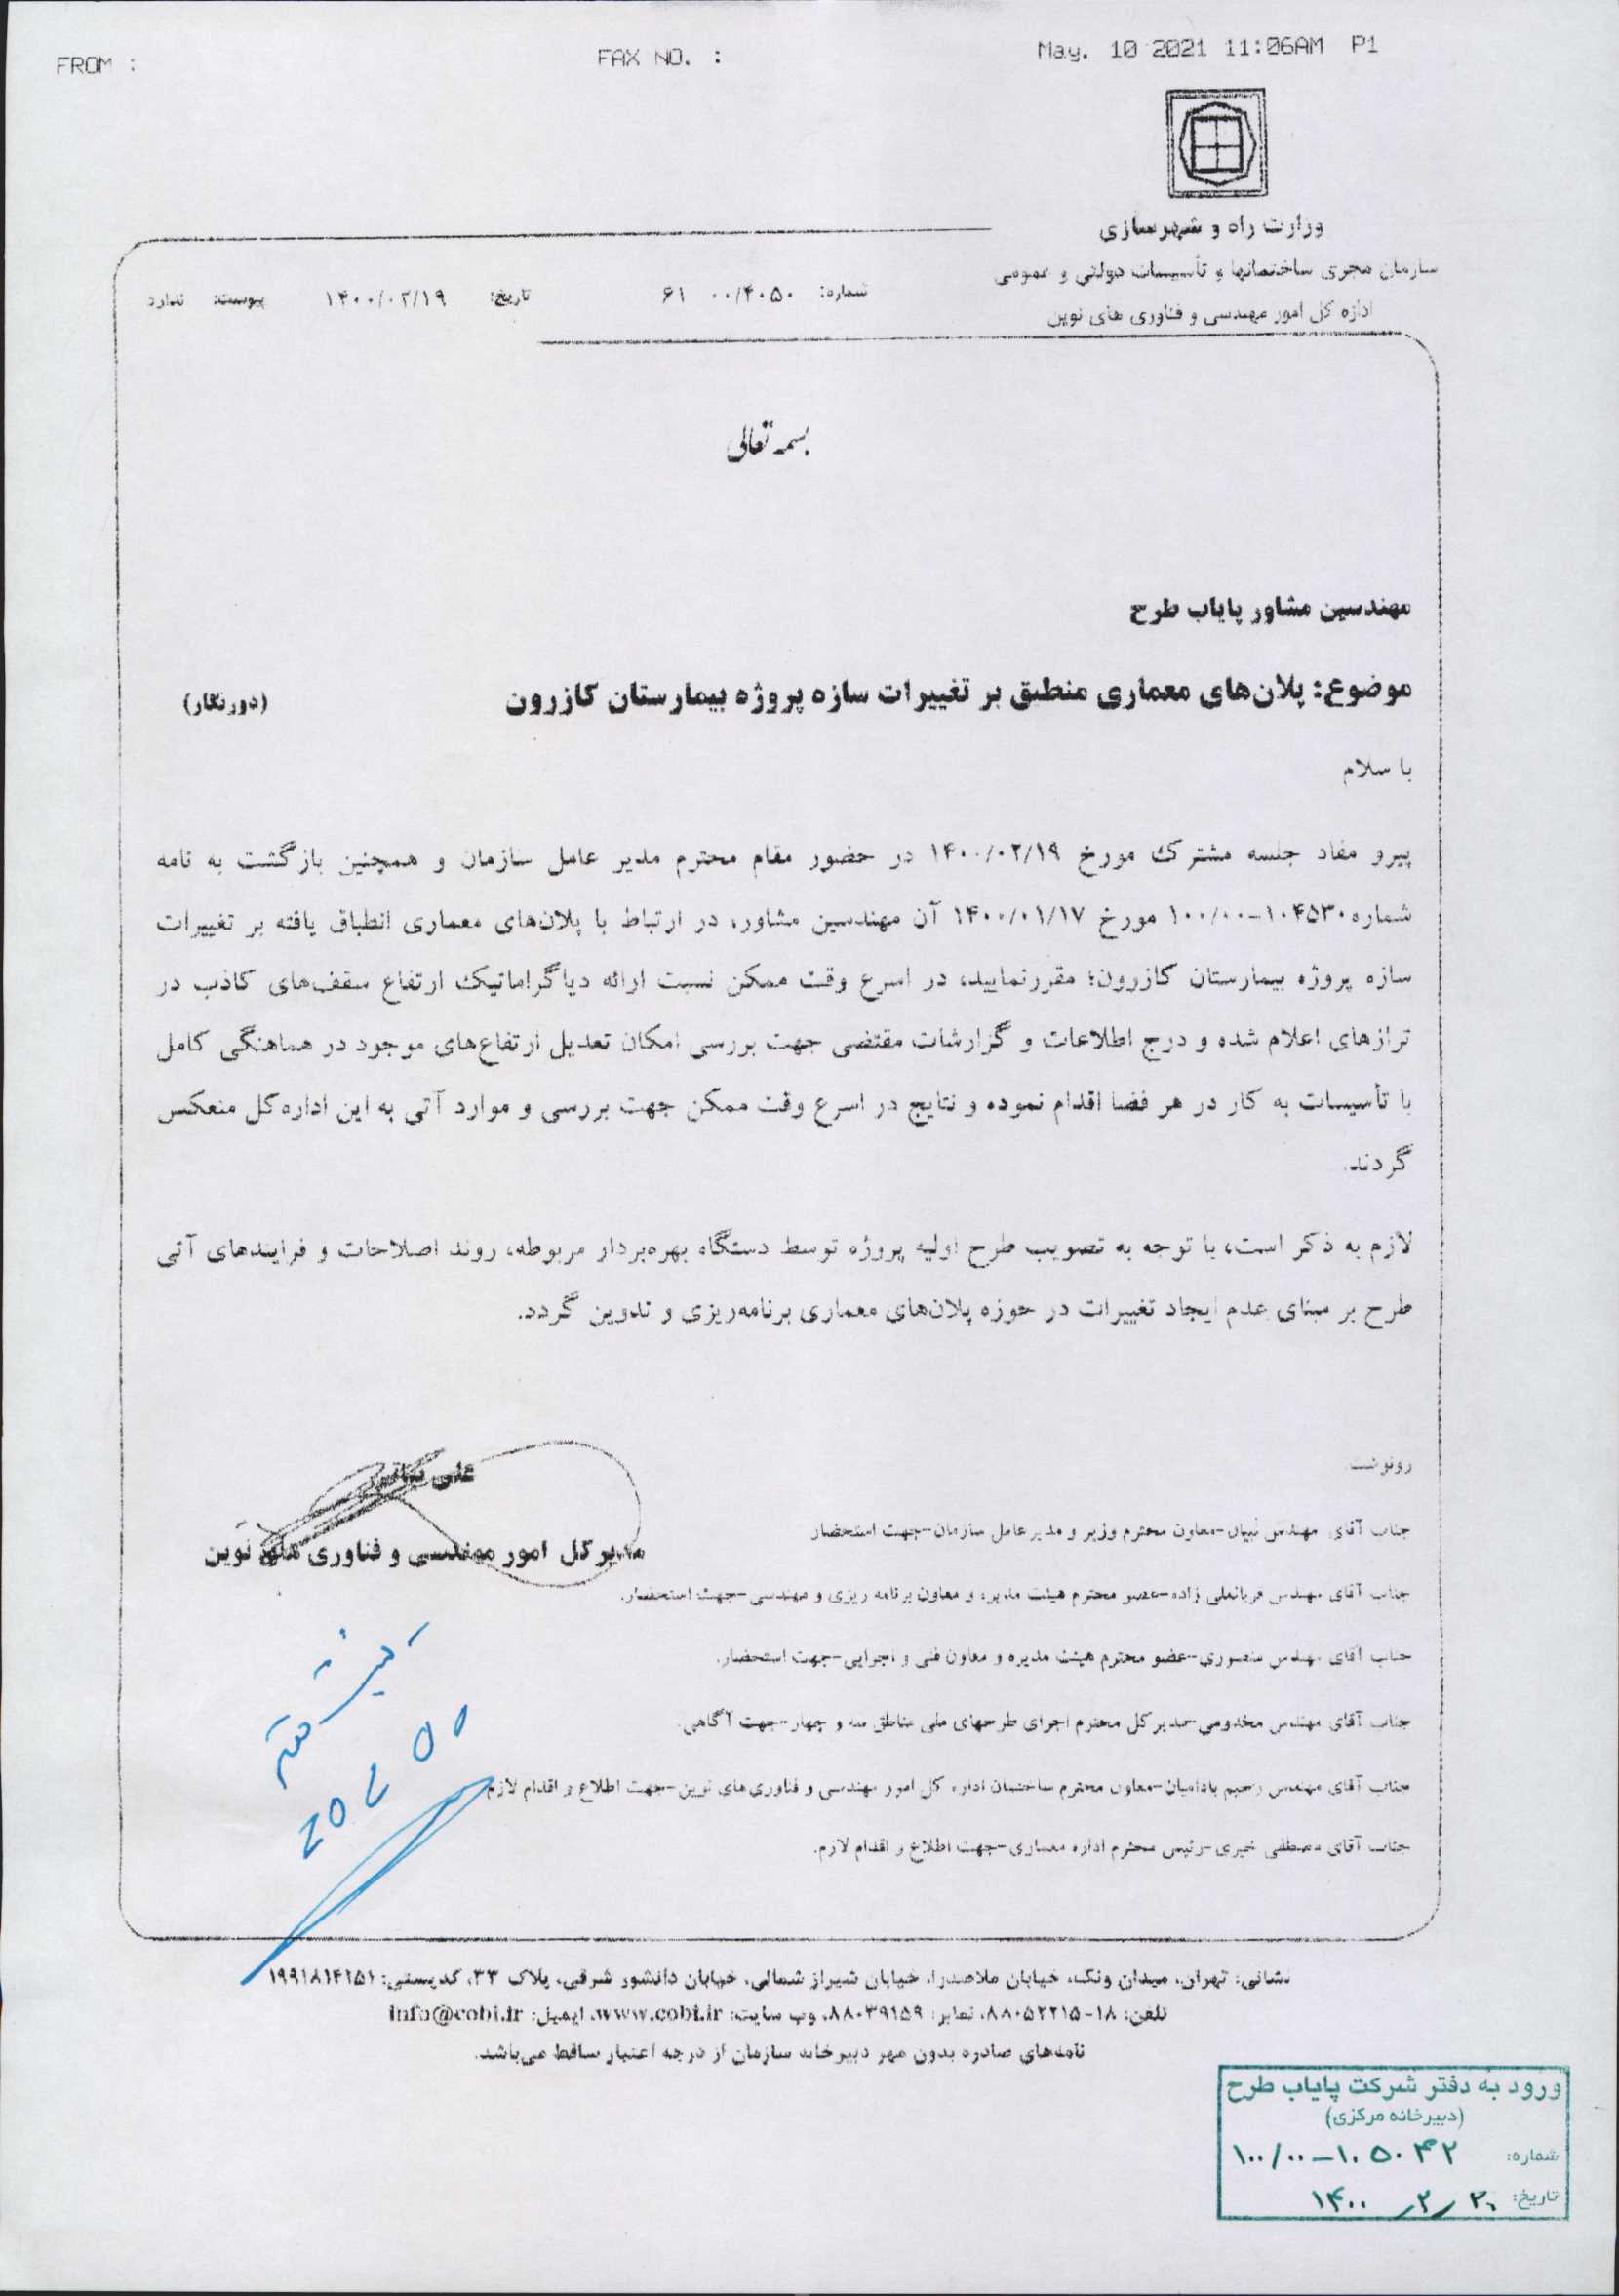 FROM :
FAX NO. :
May. 10 2021 11:06AM P1
وزارت راه و شهرسازی
سازمان مجری ساختمانها و تأسیسات دولتی و عمومی
اداره کل امور مهندسی و فناوری های نوین
شماره: ۰۰/۴۰۵۰ ۶۱
تاریخ: ۱۴۰۰/۰۲/۱۹
پیوست: ندارد
بسمه تعالی
مهندسین مشاور پایاب طرح
موضوع: پلان‌های معماری منطبق بر تغییرات سازه پروژه بیمارستان کازرون
(دورنگار)
با سلام
پیرو مفاد جلسه مشترک مورخ ۱۴۰۰/۰۲/۱۹ در حضور مقام محترم مدیر عامل سازمان و همچنین بازگشت به نامه
شماره ۱۰۴۵۳۰-۱۰۰/۰۰ مورخ ۱۴۰۰/۰۱/۱۷ آن مهندسین مشاور، در ارتباط با پلان‌های معماری انطباق یافته بر تغییرات
سازه پروژه بیمارستان کازرون؛ مقررنمایید، در اسرع وقت ممکن نسبت ارائه دیاگراماتیک ارتفاع سقف‌های کاذب در
ترازهای اعلام شده و درج اطلاعات و گزارشات مقتضی جهت بررسی امکان تعدیل ارتفاع‌های موجود در هماهنگی کامل
با تأسیسات به کار در هر فضا اقدام نموده و نتایج در اسرع وقت ممکن جهت بررسی و موارد آتی به این اداره‌کل منعکس
گردند.
لازم به ذکر است، با توجه به تصویب طرح اولیه پروژه توسط دستگاه بهره‌بردار مربوطه، روند اصلاحات و فرایندهای آتی
طرح بر مبنای عدم ایجاد تغییرات در حوزه پلان‌های معماری برنامه‌ریزی و تدوین گردد.
علی
مدیر کل امور مهندسی و فناوری های نوین
رونوشت
جناب آقای مهندس نبیان-معاون محترم وزیر و مدیر عامل سازمان-جهت استحضار
جناب آقای مهندس قربانعلی زاده-عضو محترم هیئت مدیره و معاون برنامه ریزی و مهندسی-جهت استحضار.
جناب آقای مهندس منصوری-عضو محترم هیئت مدیره و معاون فنی و اجرایی-جهت استحضار.
جناب آقای مهندس مخدومی-مدیر کل محترم اجرای طرحهای ملی مناطق سه و چهار-جهت آگاهی.
جناب آقای مهندس رحیم بادامیان-معاون محترم ساختمان اداره کل امور مهندسی و فناوری‌های نوین-جهت اطلاع و اقدام لازم.
جناب آقای مصطفی خیری-رئیس محترم اداره معماری-جهت اطلاع و اقدام لازم.
نشانی: تهران، میدان ونک، خیابان ملاصدرا، خیابان شیراز شمالی، خیابان دانشور شرقی، پلاک ۲۳، کدپستی: ۱۹۹۱۸۱۴۱۵۱
تلفن: ۱۸-۸۸۰۵۲۲۱۵، نمابر: ۸۸۰۳۹۱۵۹، وب سایت: www.cobi.ir، ایمیل: info@cobi.ir
نامه‌های صادره بدون مهر دبیرخانه سازمان از درجه اعتبار ساقط می‌باشد.
ورود به دفتر شرکت پایاب طرح
(دبیرخانه مرکزی)
شماره: ۱۰۰/۰۰-۱۰۵۰۴۲
تاریخ: ۱۴۰۰/۲/۲۰